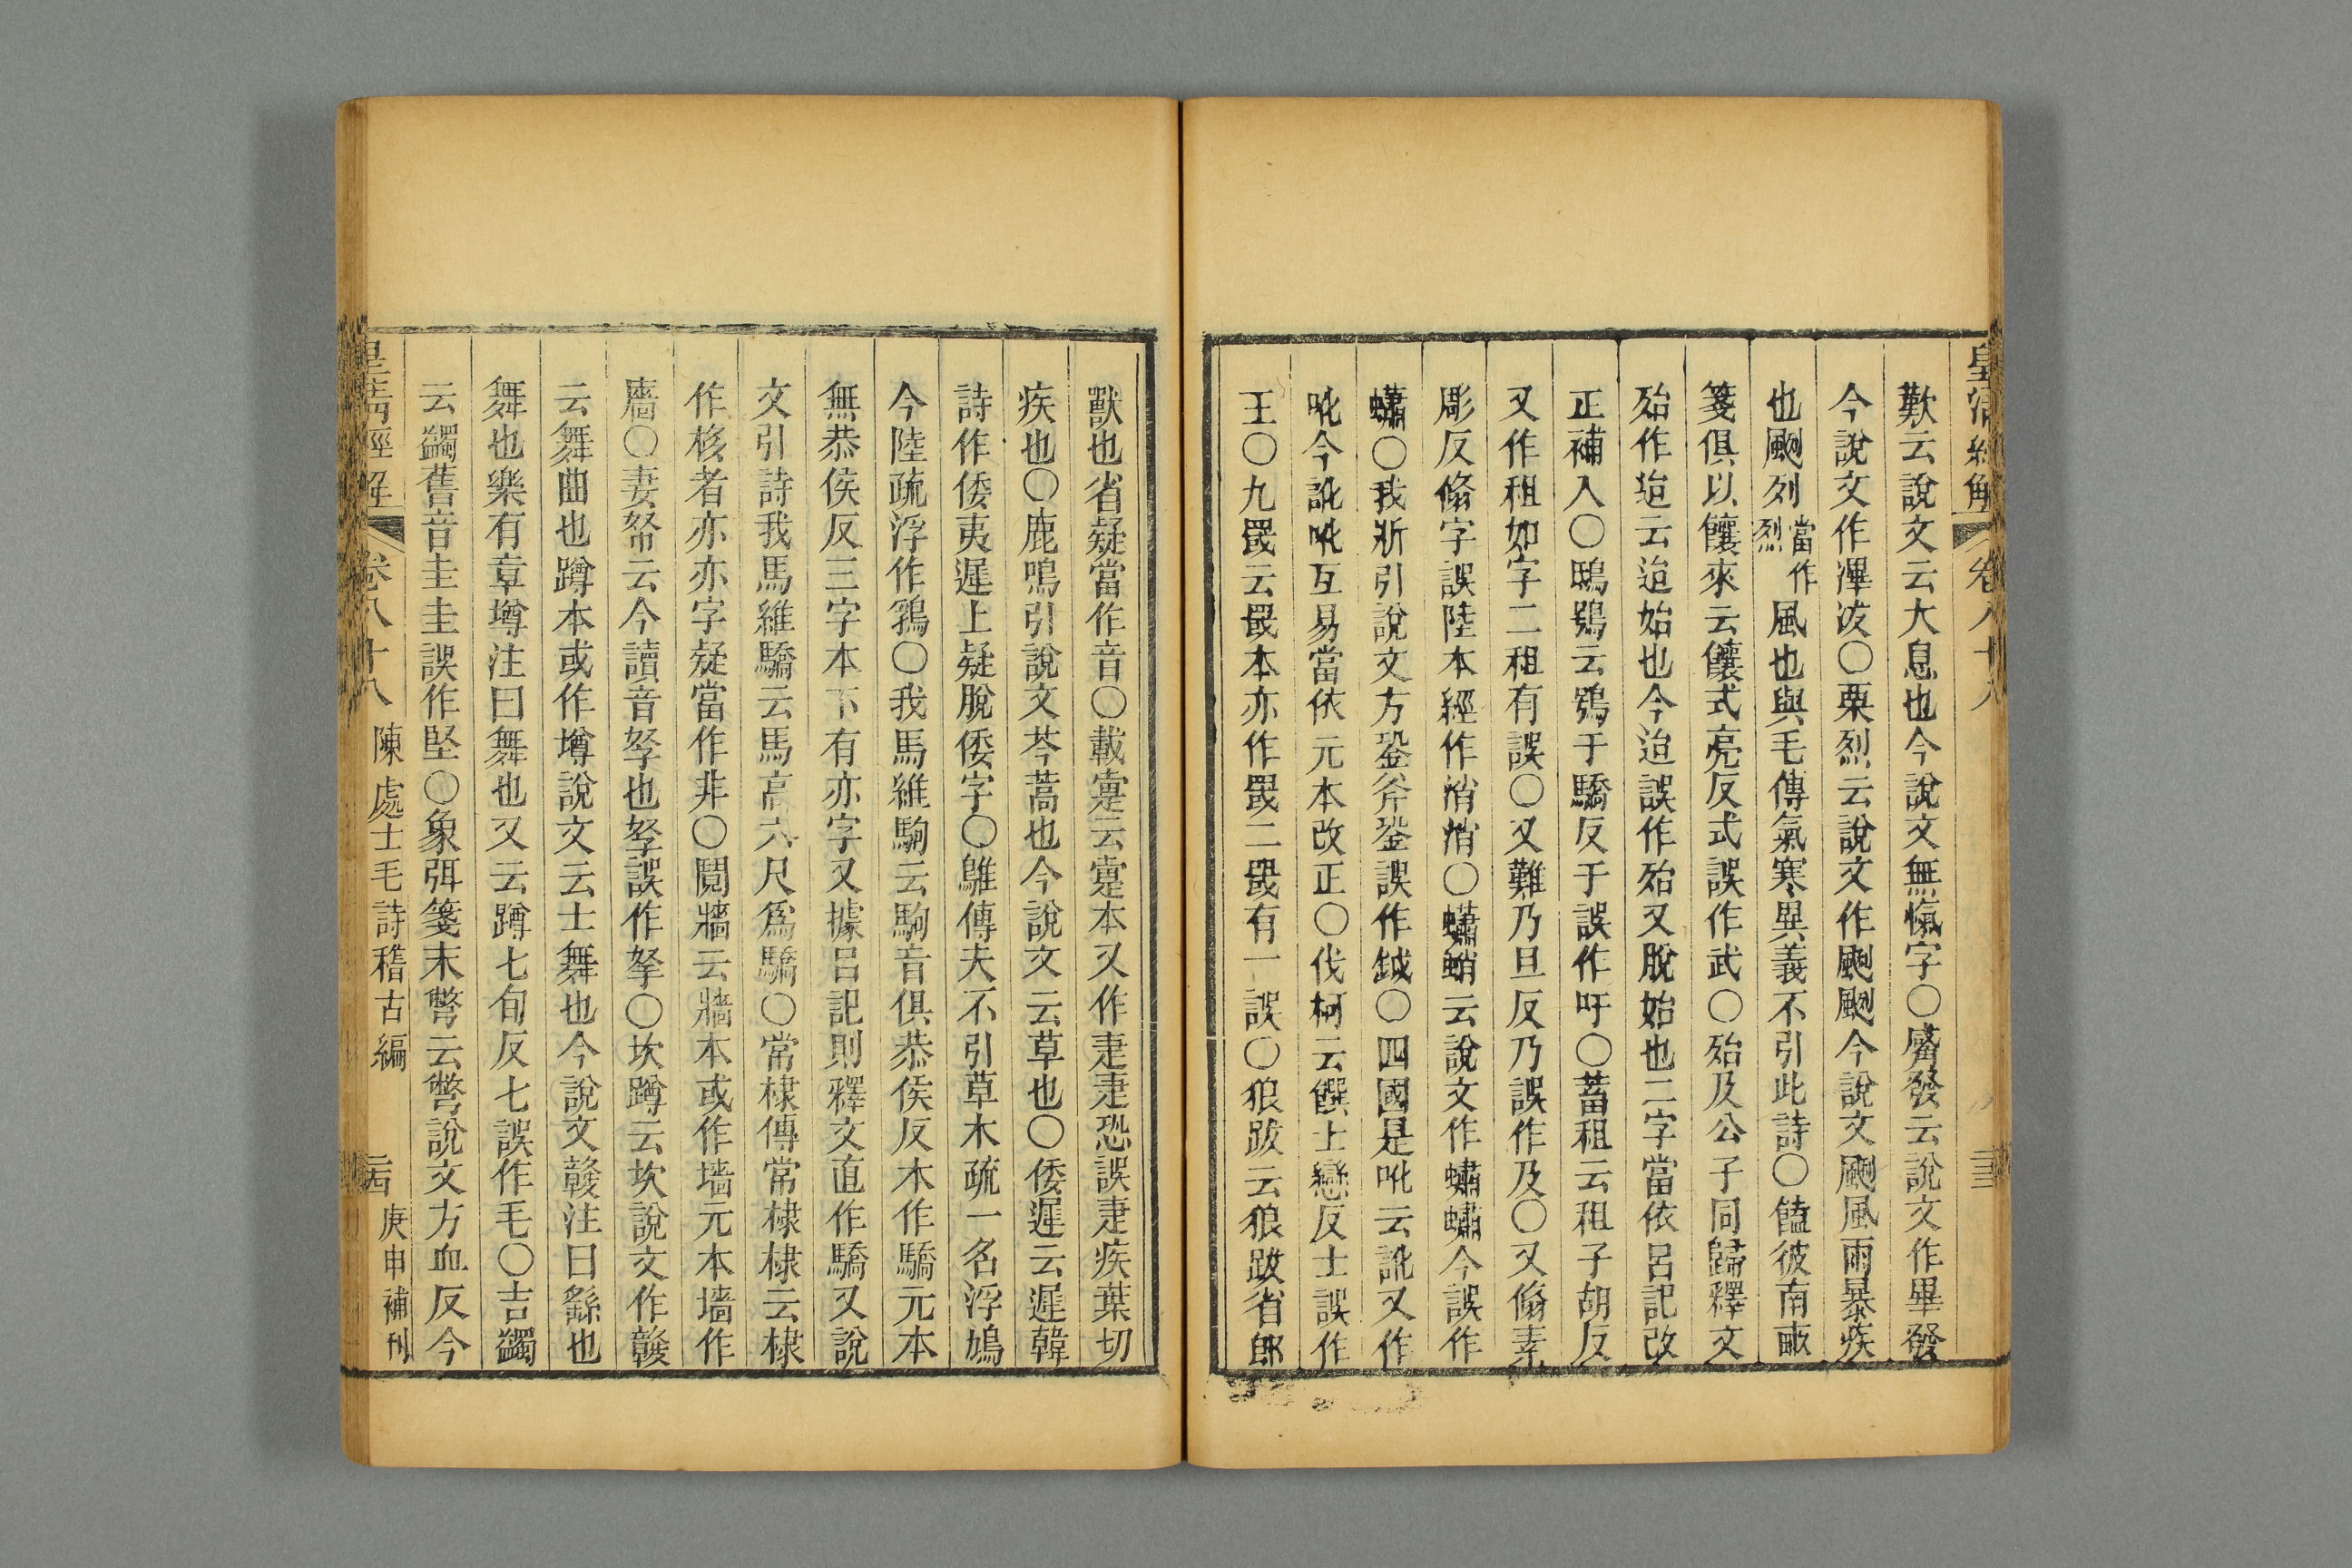 皇清經解 卷八十八
歎云說文云大息也今說文無愾字〇觱發云說文作畢發
今說文作滭冹〇栗烈云說文作颲颲今說文颲風雨暴疾
也颲列當作烈風也與毛傳氣寒異義不引此詩〇饁彼南畝
箋俱以饟來云饟式亮反式誤作武〇殆及公子同歸釋文
殆作迨云迨始也今迨誤作殆又脫始也二字當依呂記改
正補入〇鴟鴞云鴞于驕反于誤作吁〇蓄租云租子胡反
又作租如字二租有誤〇又難乃旦反乃誤作及〇又翛素
彫反翛字誤陸本經作消消〇蠨蛸云說文作蟰蟰今誤作
蠨〇我斨引說文方銎斧銎誤作鉞〇四國是吪云訛又作
吪今訛吪互易當依元本改正〇伐柯云饌士戀反士誤作
王〇九罭云罭本亦作罭二罭有一誤〇狼跋云狼跋省郎
獸也省疑當作音〇載疐云疐本又作疌疌恐誤疌疾葉切
疾也〇鹿鳴引說文芩蒿也今說文云草也〇倭遲云遲韓
詩作倭夷遲上疑脫倭字〇鵻傳夫不引草木疏一名浮鳩
今陸疏浮作鵓〇我馬維駒云駒音俱恭侯反本作驕元本
無恭侯反三字本下有亦字又據呂記則釋文直作驕又說
文引詩我馬維驕云馬高六尺爲驕〇常棣傳常棣棣云棣
作栘者亦亦字疑當作非〇鬩牆云牆本或作墻元本墻作
廧〇妻帑云今讀音孥也孥誤作拏〇坎蹲云坎說文作竷
云舞曲也蹲本或作墫說文云士舞也今說文竷注曰繇也
舞也樂有章墫注曰舞也又云蹲七旬反七誤作毛〇吉蠲
云蠲舊音圭圭誤作堅〇象弭箋末彆云彆說文方血反今
皇清經解 卷八十八 陳處士毛詩稽古編 二十四 庚申補刊